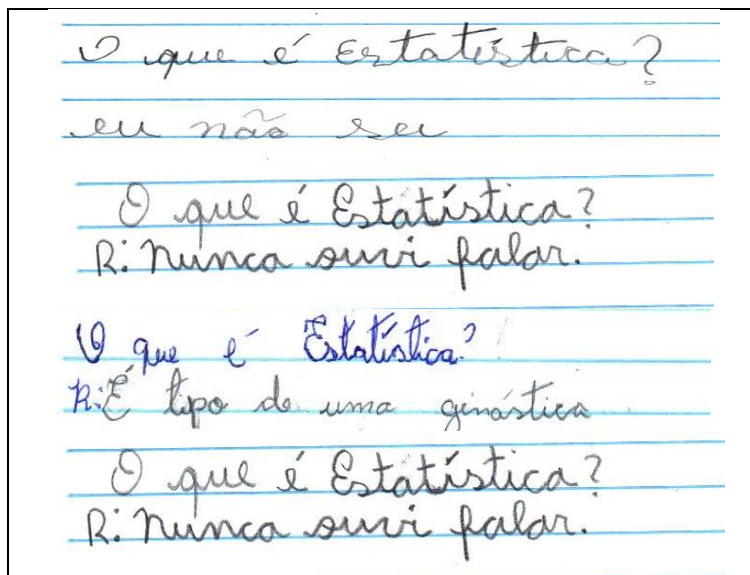 O que é Estatística?
eu não sei
O que é Estatística?
R: Nunca ouvi falar.
O que é Estatística?
R: É tipo de uma ginástica
O que é Estatística?
R: Nunca ouvi falar.